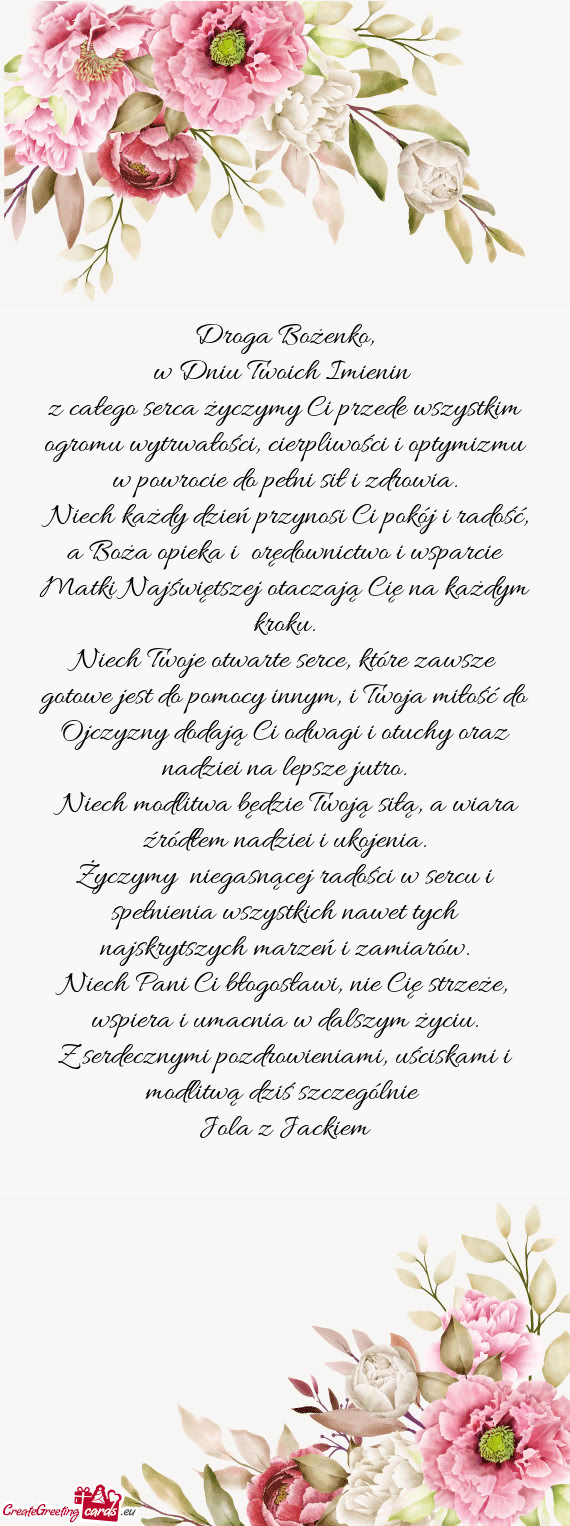 Droga Bożenko,
w Dniu Twoich Imienin
z całego serca życzymy Ci przede wszystkim
ogromu wytrwałości, cierpliwości i optymizmu
w powrocie do pełni sił i zdrowia.
Niech każdy dzień przynosi Ci pokój i radość,
a Boża opieka i  orędownictwo i wsparcie
Matki Najświętszej otaczają Cię na każdym
kroku.
Niech Twoje otwarte serce, które zawsze
gotowe jest do pomocy innym, i Twoja miłość do
Ojczyzny dodają Ci odwagi i otuchy oraz
nadziei na lepsze jutro.
Niech modlitwa będzie Twoją siłą, a wiara
źródłem nadziei i ukojenia.
Życzymy  niegasnącej radości w sercu i
spełnienia wszystkich nawet tych
najskrytszych marzeń i zamiarów.
Niech Pani Ci błogosławi, nie Cię strzeże,
wspiera i umacnia w dalszym życiu.
Z serdecznymi pozdrowieniami, uściskami i
modlitwą dziś szczególnie
Jola z Jackiem
CreateGreeting cards .eu